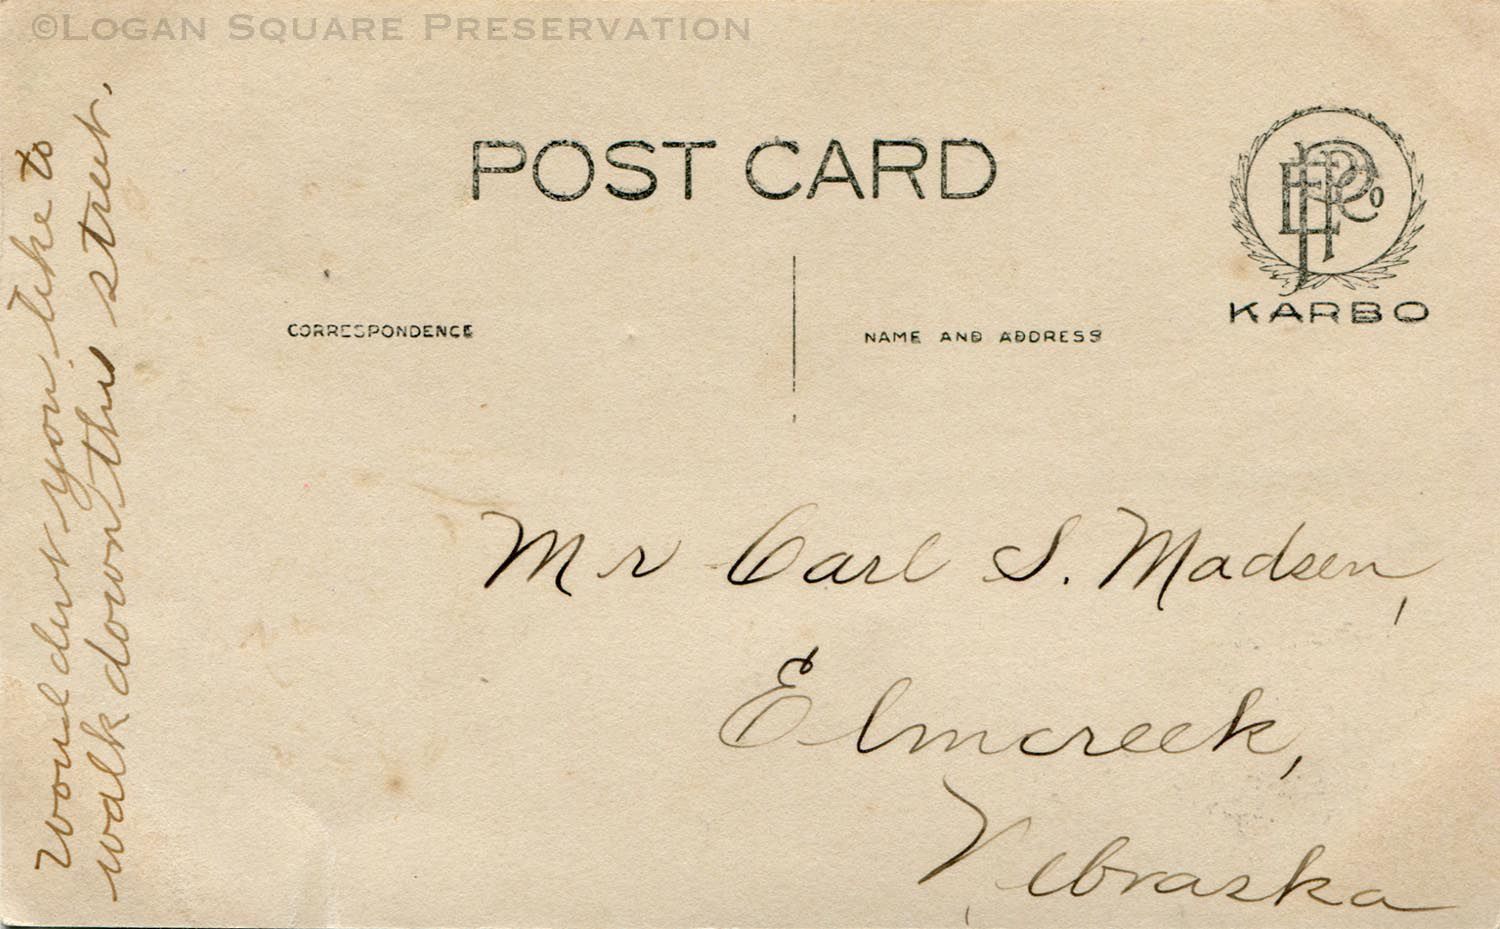 ©Logan Square Preservation
POST CARD
KARBO
CORRESPONDENCE
NAME AND ADDRESS
Wouldent you like to
walk down this street.
Mr Carl S. Madsen,
Elmcreek,
Nebraska